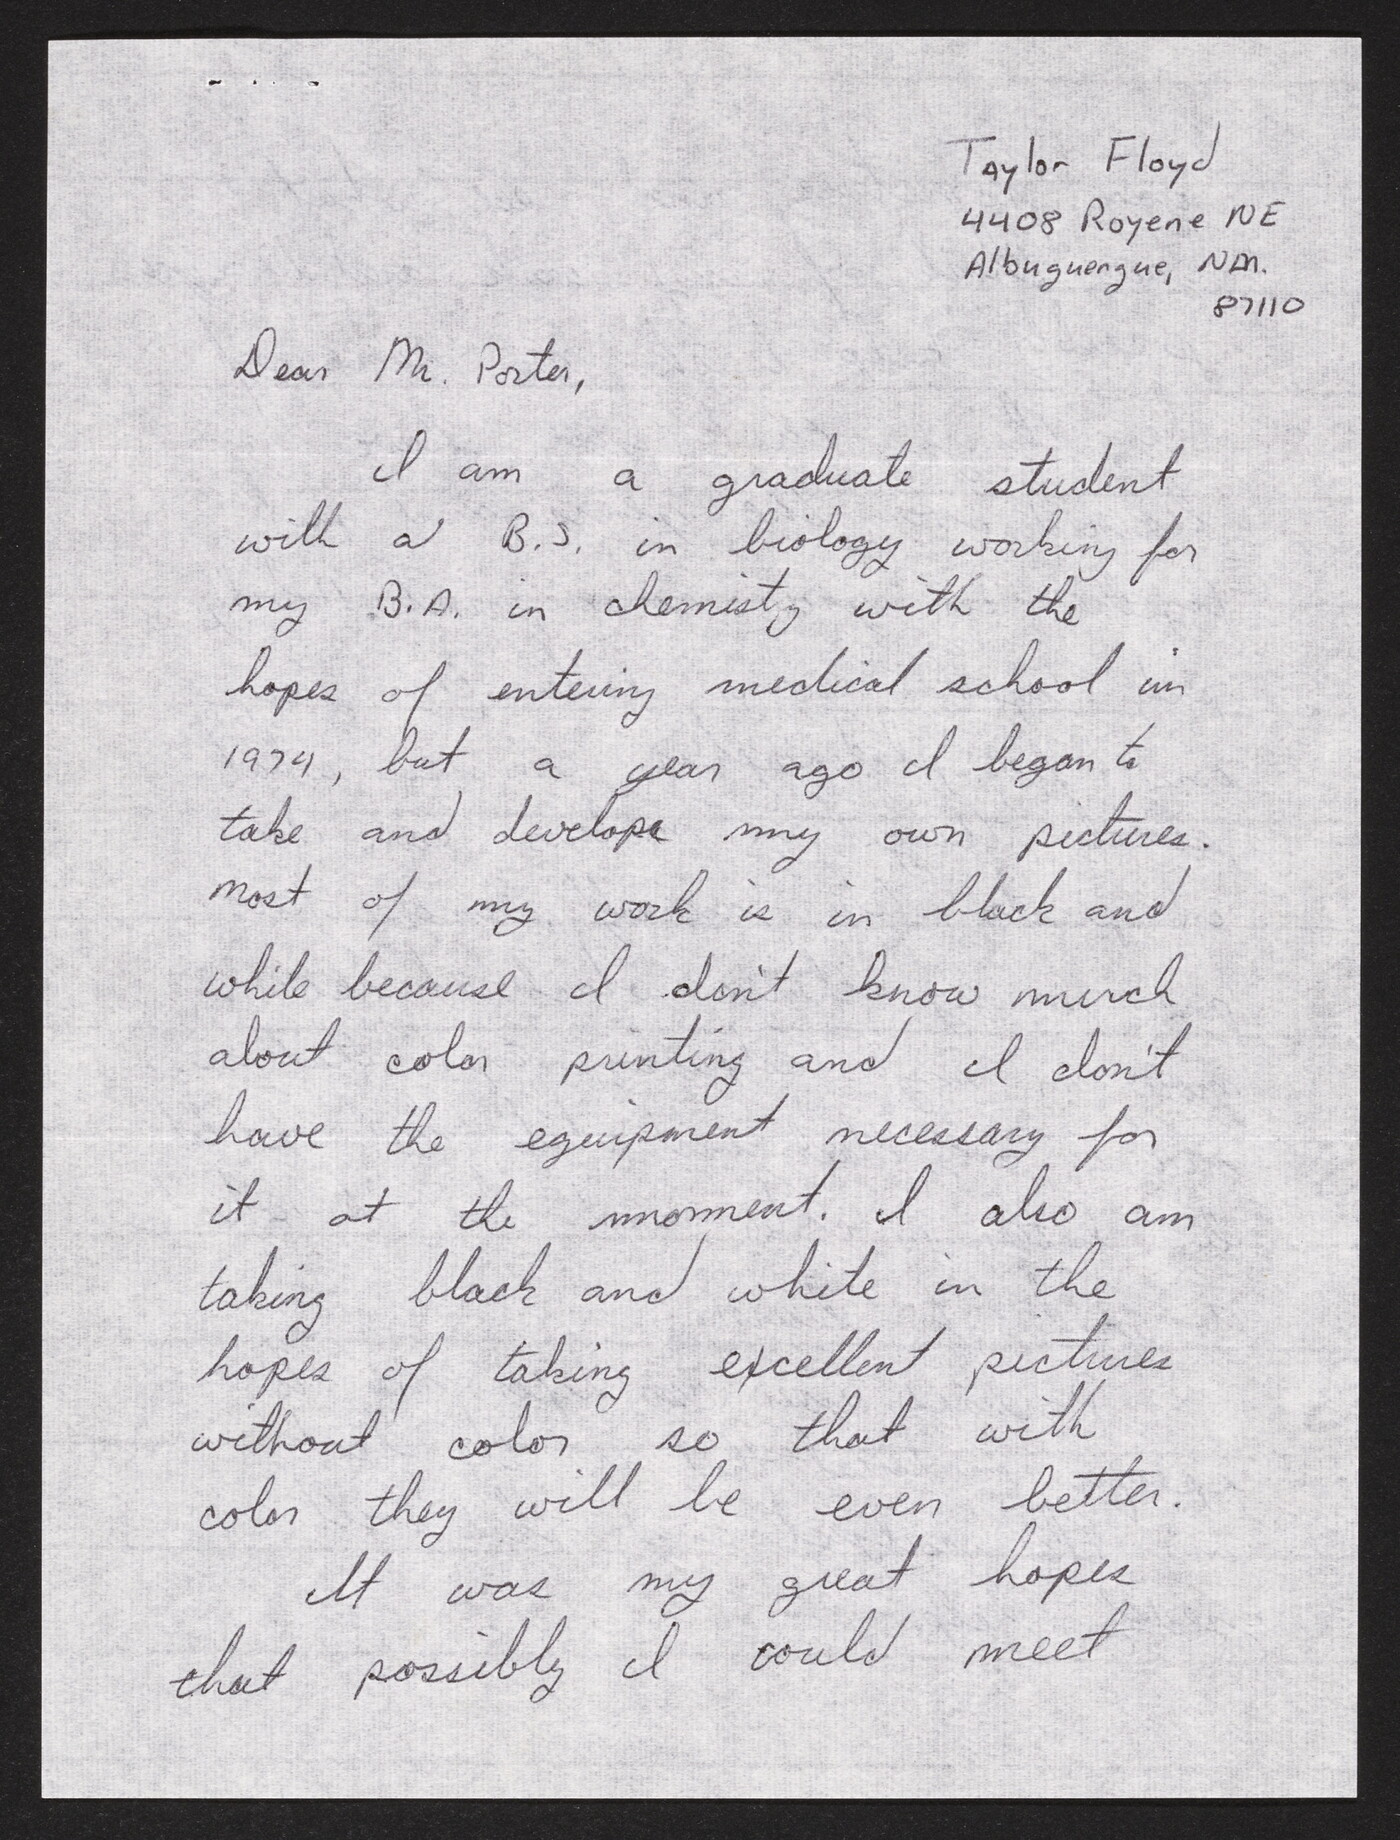 Taylor Floyd
4408 Royene NE
Albuquerque, NM.
87110
Dear Mr. Porter,
I am a graduate student
with a B.S. in biology working for
my B.A. in chemisty with the
hopes of entering medical school in
1974, but a year ago I began to
take and develope my own pictures.
Most of my work is in black and
while because I don't know much
about color printing and I don't
have the equipment necessary for
it at the moment. I also am
taking black and white in the
hopes of taking excellent pictures
without color so that with
color they will be even better.
It was my great hopes
that possibly I could meet